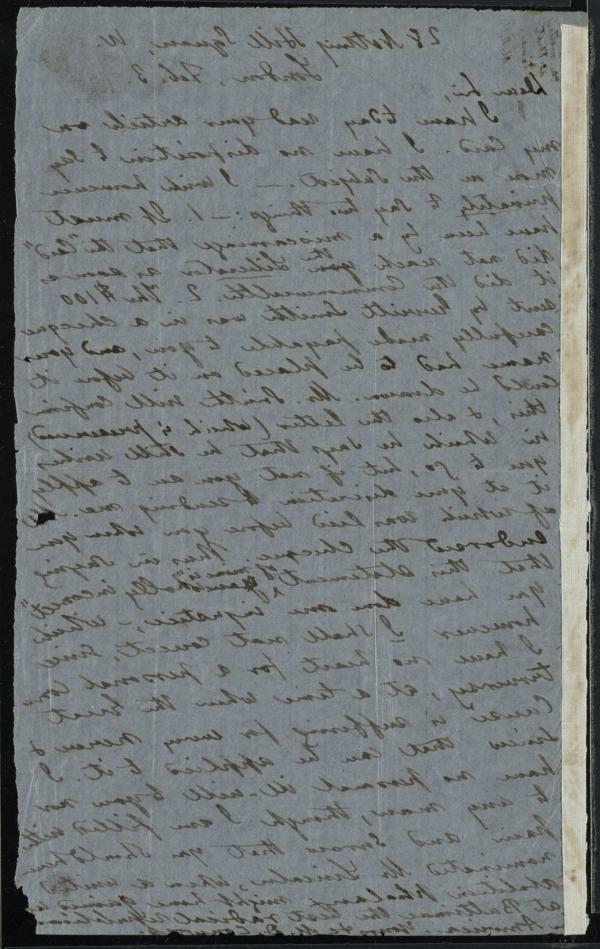 28 Notting Hill Square, W.
London, Feb. 3.
Dear Sir,
I have today read your article on
my Card. I have no disposition to say
more on the subject. — I will however
privately to say two things:—1. It must
have been by a miscarriage that the "Card"
did not reach you the Liberator as soon as
it did the Commonwealth. 2. The $100
sent by Gerritt Smith was in a cheque
carefully made payable to you, and your
name had to be placed on it before it
could be drawn. Mr. Smith will confirm
this, & also the letter (which is preserved)
in which he says that he still wishes
you to go, but if not you are to apply
it at your discretion to sending me. All
of which was laid before you when you
endorsed the cheque. Thus in saying
that this statement of mine is "essentially incorrect"
you have done me injustice,— which
however I shall not correct, since
I have no heart for a personal con
troversy, at a time when the Great
Cause is suffering for every nerve &
sinew that can be applied to it. I
have no personal ill-will to you or
to any man, though I am filled with
pain and sorrow that you should have
nominated Mr Lincoln, when a united
abolition phalanx might have given us
at Baltimore the last radical
America. Yours &c M. D. Conway